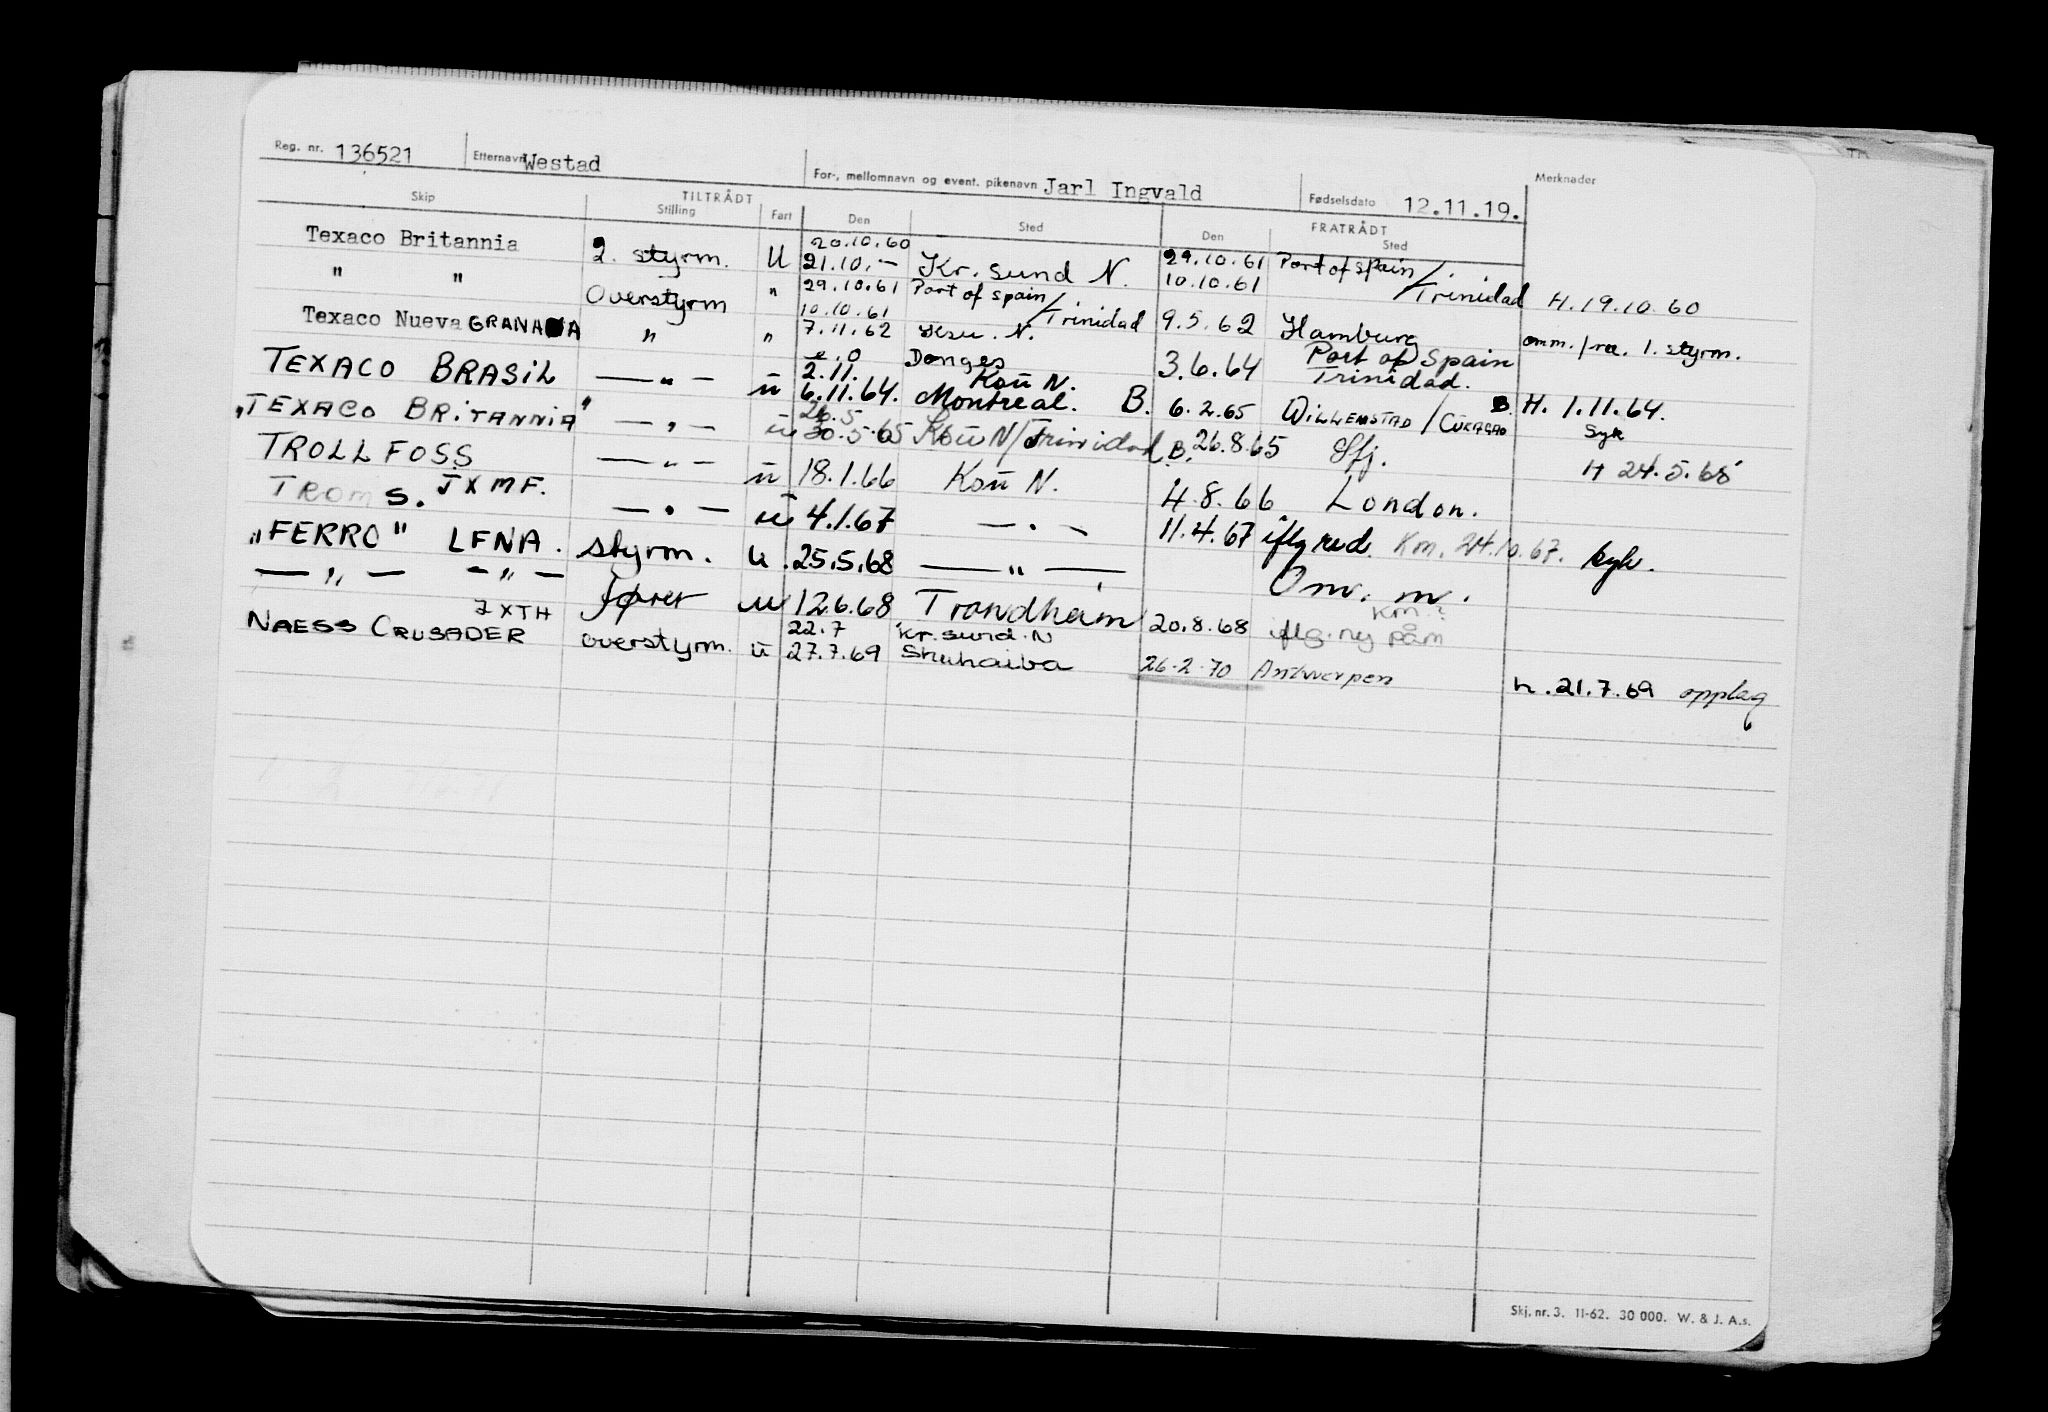 Reg. nr. 136521 Etternavn Westad For-, mellomnavn og event. pikenavn Jarl Ingvald Fødselsdato 12.11.19. Merknader
Skip TILTRÅDT Stilling Fart Den Sted FRATRÅDT Den Sted
Texaco Britannia 2. styrm. U 20.10.60 21.10.- Kr. sund N. 29.10.61 10.10.61 Port of Spain/Trinidad H. 19.10.60
" " Overstyrm " 29.10.61 10.10.61 Port of Spain/Trinidad 9.5.62 Hamburg omm. fra. 1. styrm.
Texaco Nueva GRANADA " " 7.11.62 Ksu. N. Donges 3.6.64 Port of Spain Trinidad.
TEXACO BRASIL —"— ū 2.11. 6.11.64. Kou N. Montreal. B. 6.2.65 WILLEMSTAD/CURACAO B. H. 1.11.64. Syk
"TEXACO BRITANNIA" —"— ū 26.5 30.5.65 Kou N/Trinidad B. 26.8.65 Sfj. H 24.5.65
TROLLFOSS —"— ū 18.1.66 Kou N. 4.8.66 London.
TROMS. JXMF. —"— ū 4.1.67 —"— 11.4.67 iflg rad. Km. 24.10.67. syk.
"FERRO" LFNA. styrm. U. 25.5.68 —"— Omr. m.
—"— —"— fører U 12.6.68 Trondheim 20.8.68 iflg. ny påm Km.?
NAESS CRUSADER JXTH overstyrm. ū 22.7 27.7.69 Kr. sund. N Shuhaiba 26.2.70 Antwerpen h. 21.7.69 opplag
Skj. nr. 3. 11-62. 30 000. W. & J. A.s.